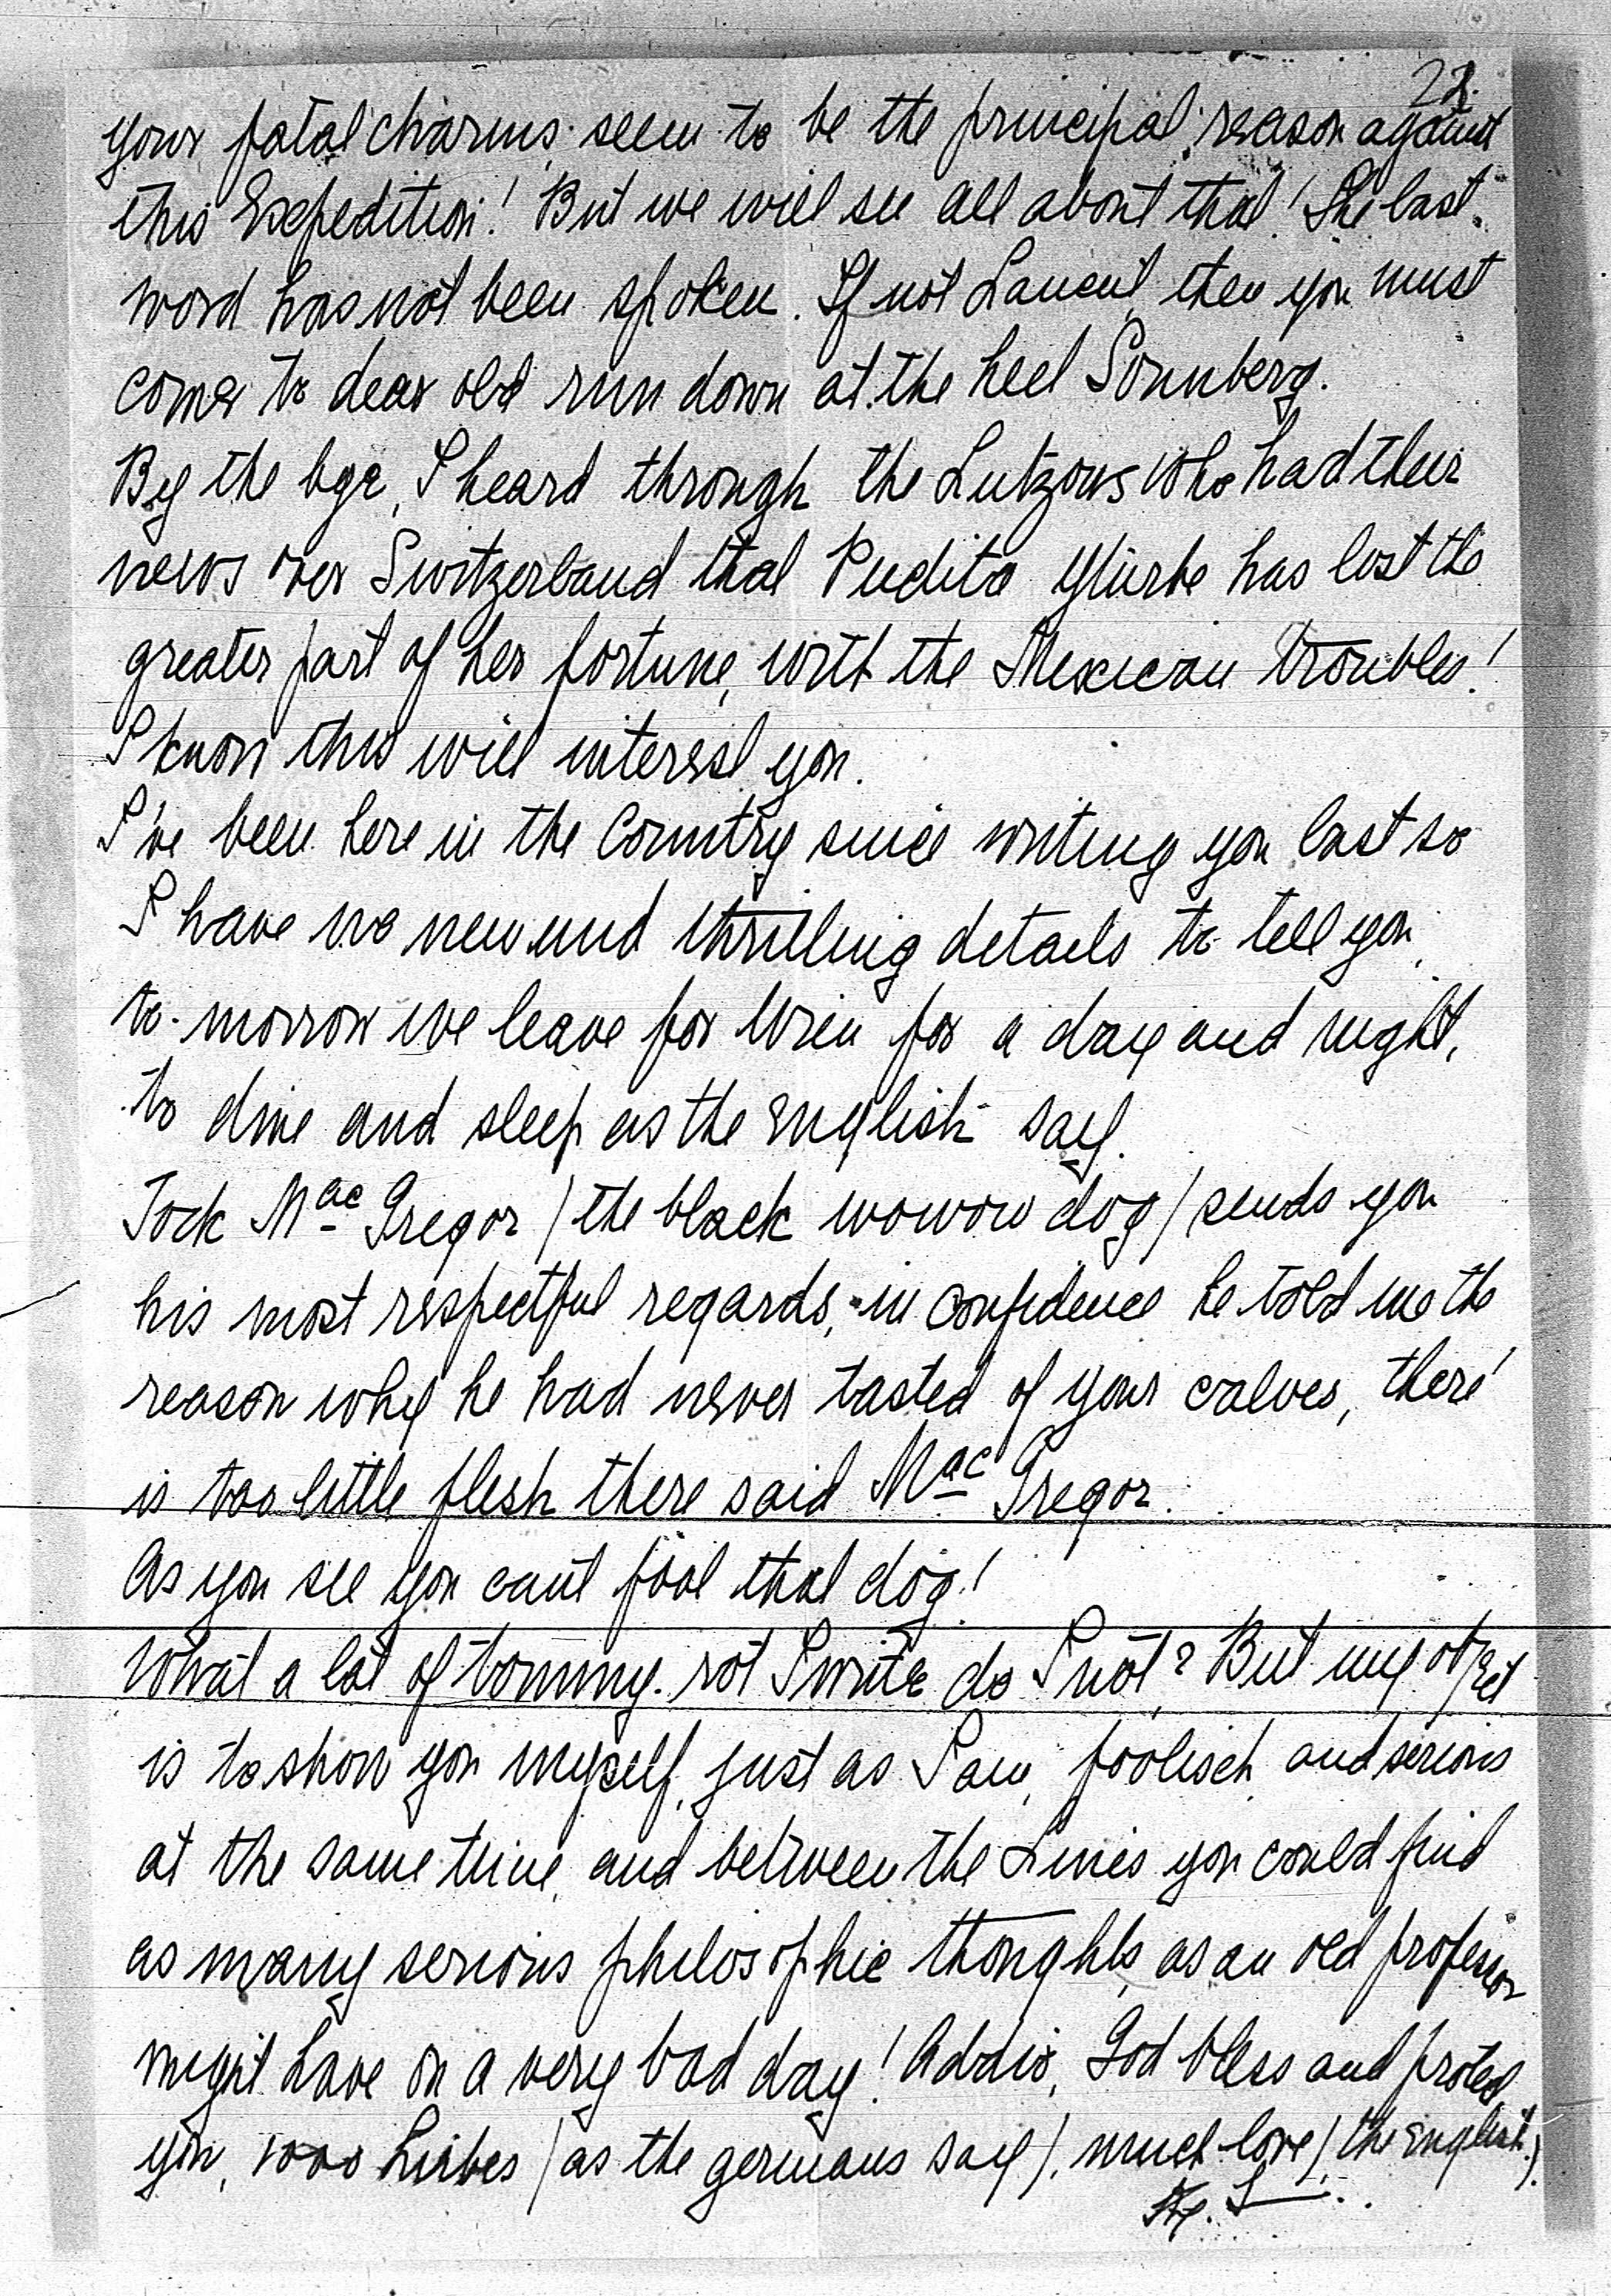 22.
your fatal charms seem to be the principal reason against
this Expedition! But we will see all about that! The last
word has not been spoken. If not Lancut, then you must
come to dear old run down at the heel Sonnberg.
By the bye, I heard through the Lutzows who had their
news over Switzerland that Yturbe has lost the
greater part of her fortune, with the Mexican troubles!
I know this will interest you.
I've been here in the Country since writing you last so
I have no new und thrilling details to tell you,
to-morrow we leave for Wien for a day and night,
to dine and sleep as the English say.
Jock Mac Gregor / the black wowow dog / sends you
his most respectful regards, in confidence he told me the
reason why he had never tasted of your calves, there'
is too little flesh there said Mac Gregor.
As you see you cant fool that dog!
What a lot of tommy-rot I write do I not? But my object
is to show you myself, just as I am, foolisch and serious
at the same time, and between the Lines you could find
as many serious philosophic thoughts, as an old professor
might have on a very bad day! Addio, God bless and protect
you, 1000 Liebes / as the germans say /, much love / the English /.